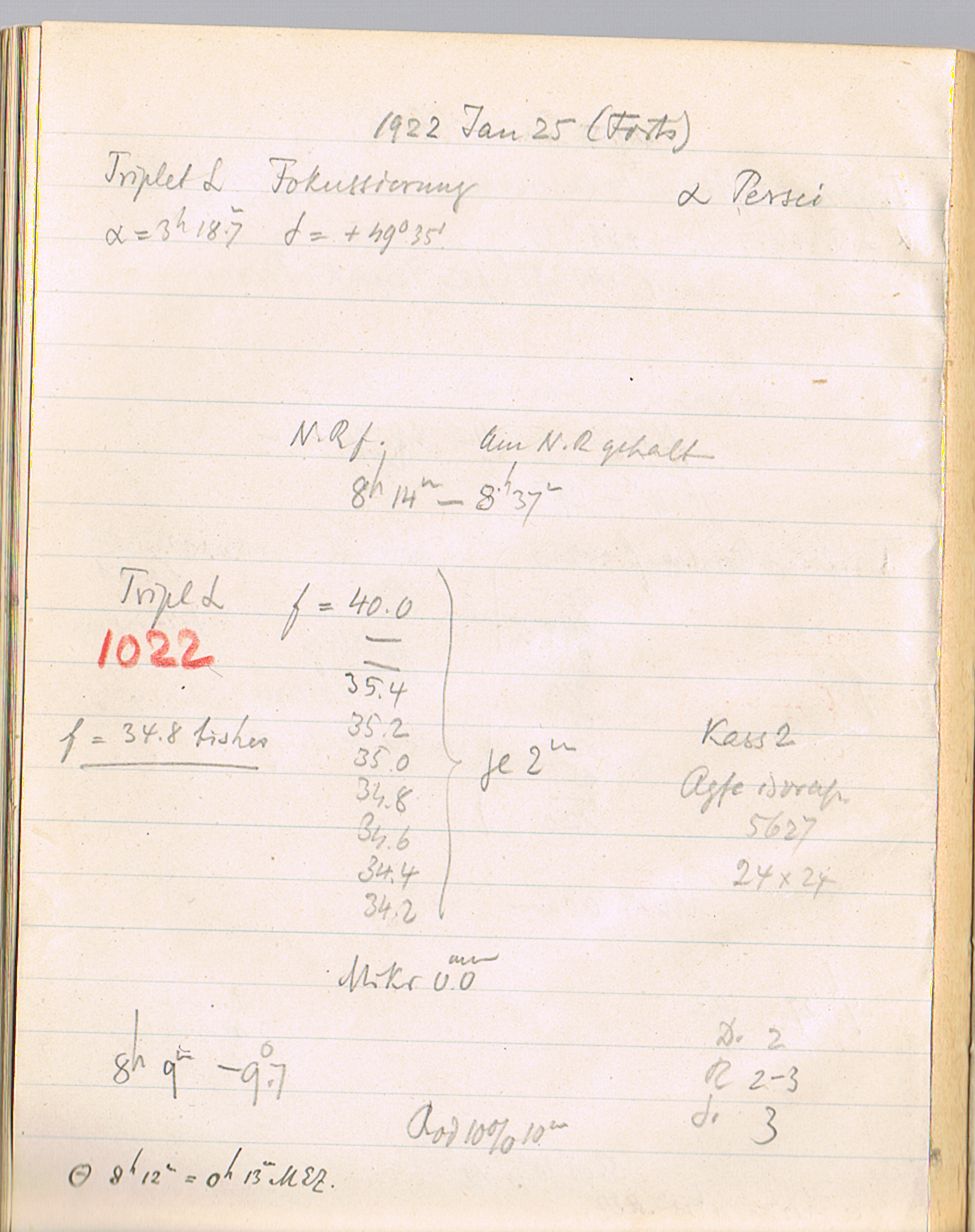 1922 Jan 25 (Forts)
Triplet L Fokussierung α Persei
α = 3h 18.m7 δ = + 49° 35'
N.R f; am N.R gehalt
8h 14m — 8h 37m
Tripl L f = 40.0
1022
—
—
35.4
35.2
f = 34.8 bisher
35.0
34.8
34.6
34.4
34.2
je 2m
Kass 2
Agfa isorap.
5627
24 x 24
Mikr 0.0mm
8h 9m −9.°7
D. 2
R 2-3
S. 3
Rod 10% 10m
Θ 8h 12m = 0h 13m MEZ.